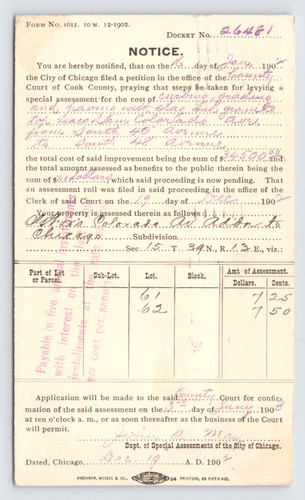 FORM NO. 1011. 10 M. 12-1902.
DOCKET NO. 26481
NOTICE.
You are hereby notified, that on the 16 day of Dec 1902
the City of Chicago filed a petition in the office of the County
Court of Cook County, praying that steps be taken for levying a
special assessment for the cost of curbing grading
and paving with slag and granite
top macadam Colorado Ave
from South 40' Avenue
to South 48 Avenue
the total cost of said improvement being the sum of $
the total amount assessed as benefits to the public therein being the
sum of $ which said proceeding is now pending. That
an assessment roll was filed in said proceeding in the office of the
Clerk of said Court on the 19 day of Dec 1902
Your property is assessed therein as follows:
Colorado Av Addn to
Chicago Subdivision
Sec 15 T. 39 N., R. 13 E., viz.:
Part of Lot or Parcel. Sub-Lot. Lot. Block. Amt of Assessment.
Dollars. Cents.
61 7 25
62 7 50
Payable in five
with interest on
installments at the
per cent per annum
Application will be made to the said County Court for confir-
mation of the said assessment on the day of Jany 1903
at ten o'clock a. m., or as soon thereafter as the business of the Court
will permit.
Supt. of Special Assessments of the City of Chicago.
Dated, Chicago, Dec 19 A. D. 1902
KIRCHNER, MECKEL & CO., 94 PRINTERS, 85 FIFTH AVE.